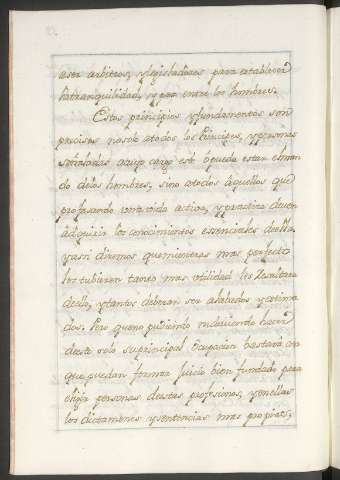 aser arbitros, ylegisladores para establecer
latranquilidad, ypaz entre los hombres.
Estos principios yfundamentos son
precisos nosolo atodos los Principes, ypersonas
señaladas acuyo cargo esté ò pueda estar elman
do delos hombres, sino atodos àquellos que
profesando una vida activa, y practica deven
àdquirir los conocimientos essenciales deella,
yassi diremos que mientras mas perfecto
los tubieren tanto mas utilidad les Resultara
dello, ytantos deberan ser alabados yestima
dos. Pero queno pudiendo nidaviendo hacer
deeste solo suprincipal ocupacion bastará con
que puedan formar juicio bien fundado para
eligir personas deestas profesiones, yenellas
los dictamenes ysentencias mas propias,